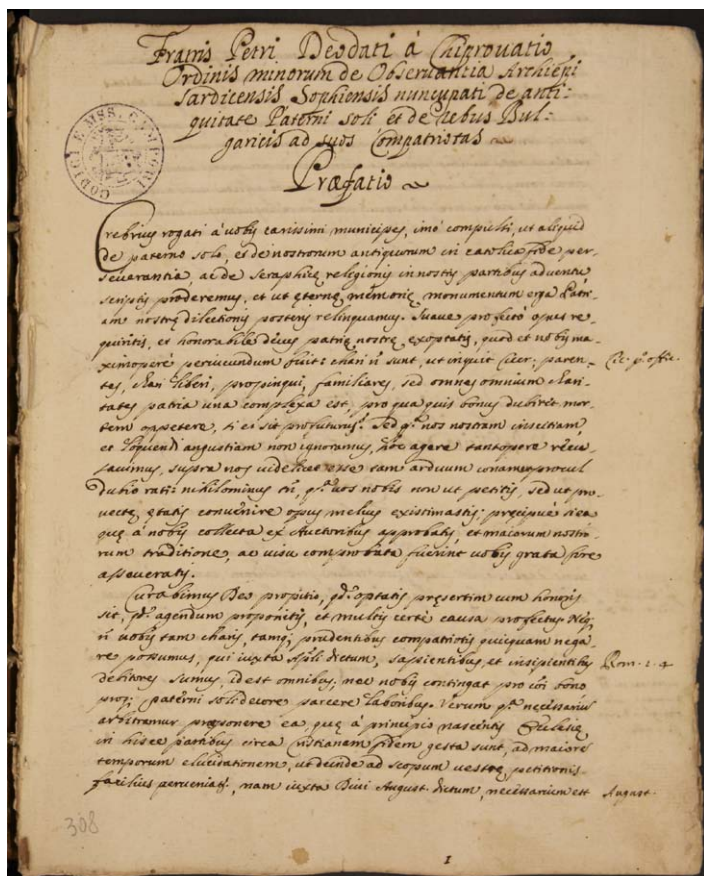 Fratris Petri Deodati à Chiprovatio
Ordinis minorum de Observantia Archiepi
Sardicensis Sophiensis nuncupati de anti:
quitate Paterni soli et de rebus Bul:
garicis ad suos Compatriotas
Præfatio
CODICI E MSS. CAMPORI
Crebrius rogati à vobis carissimi municipes, imò compulsi, ut aliquid
de paterno solo, et de nostrorum antiquorum in catolica fide per-
severantia, ac de Seraphicę religionis in nostris partibus adventu
scriptis proderemus, et ut ęternę memorię monumentum erga Patri-
am nostrę dilectionis posteris relinquamus. Suave profectò opus re-
quiritis, et honorabile decus patrię nostrę exoptatis, quod et nobis ma-
ximoperè periucundum fuit: chari n̄ sunt, ut inquit Cicer. paren-
Cic. pº offic.
tes, chari liberi, propinqui, familiares, sed omnes omnium chari-
tates patria una complexa est, pro qua quis bonus dubitet mor-
tem oppetere, si ei sit profuturus? Sed qª nos nostram inscitiam
et loquendi angustiam non ignoramus, hoc agere tantopere
supra nos videlicet esse tam arduum conamen procul
dubio rati: nihilominus tn̄, qª vos nobis non ut petitis, sed ut pro-
vectę ętatis convenire opus melius existimastis: pręcipuè si ea
quę à nobis collecta ex Auctoribus approbatis, et maiorum nostro-
rum traditione, ac visu comprobata fuerint vobis grata fore
asseveratis.
Curabimus Deo propitio, qd optatis pręsertim cum honoris
sit, qd agendum proponitis, et multis certè causa profectus. Neq;
n̄ vobis tam charis, tamq; prudentibus compatriotis quicquam nega-
re possumus, qui iuxta Apli dictum, sapientibus, et insipientibus
Rom. 1. 4
debitores sumus, id est omnibus; nec nobis contingat pro cōi bono
proq; paterni soli decore parcere laboribus. Verum qª necessariū
arbitramur pręponere ea, quę à principio nascentis Ecclesię
in hisce partibus circa Cristianam fidem gesta sunt, ad maiorē
temporum elucidationem, ut deinde ad scopum vestrę petitionis
facilius perveniatis, nam iuxta Divi August. dictum, necessarium est
August.
308
1